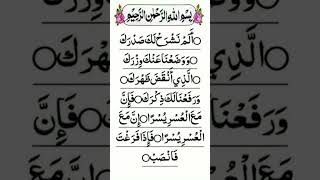 بِسْمِ اللهِ الرَّحْمٰنِ الرَّحِيْمِ
اَلَمْ نَشْرَحْ لَكَ صَدْرَكَ
○وَوَضَعْنَا عَنْكَ وِزْرَكَ
○الَّذِيْٓ اَنْقَضَ ظَهْرَكَ○
وَرَفَعْنَا لَكَ ذِكْرَكَ○فَاِنَّ
مَعَ الْعُسْرِ يُسْرًا○اِنَّ مَعَ
الْعُسْرِ يُسْرًا○فَاِذَا فَرَغْتَ
فَانْصَبْ○
فَاِنَّ